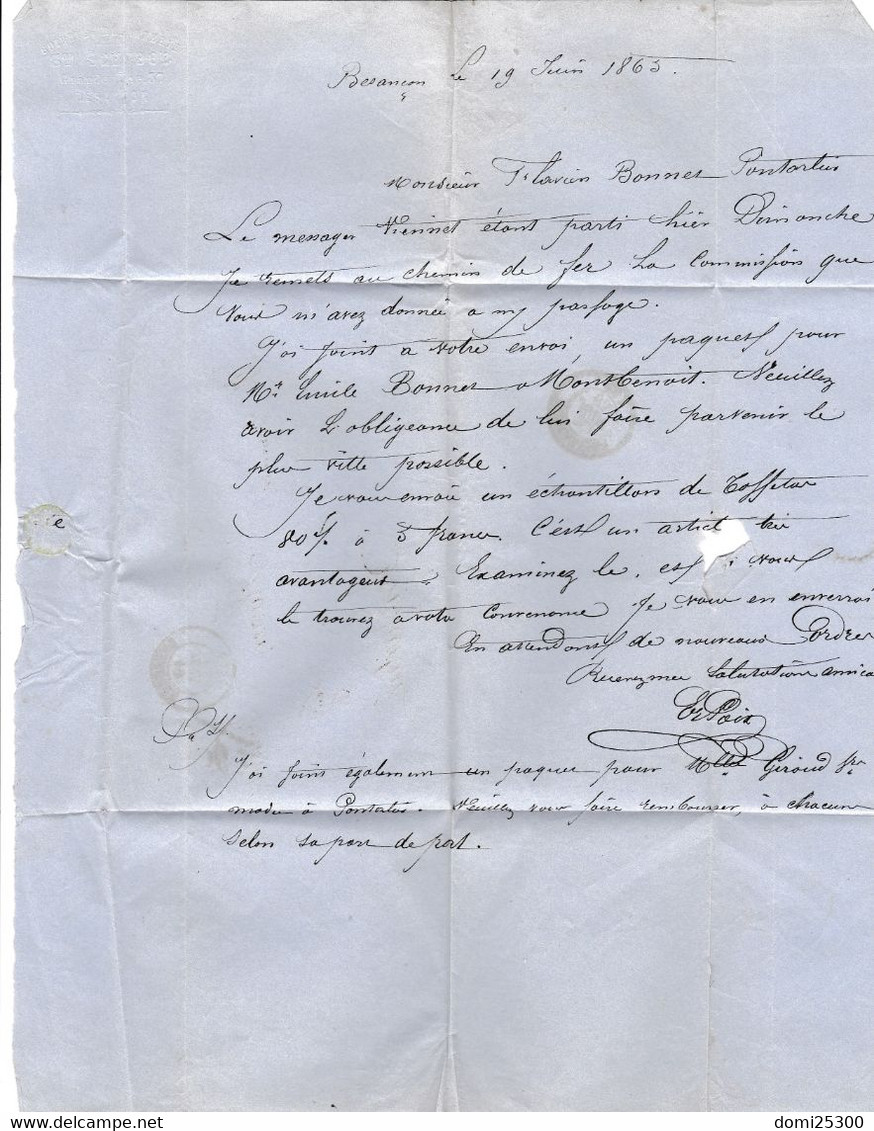 Besançon le 19 Juin 1865.
Monsieur Flavien Bonnet Pontarlier
Le messager Viennet étant parti hier Dimanche
Je remets au chemin de fer la Commission que
Vous m'avez donnée a my passage.
J'ai joint a votre envoi, un paquet pour
Mr Emile Bonnet a Montbenoit. Veuillez
avoir L'obligeance de lui faire parvenir le
plus vitte possible.
Je vous envoie un échantillons de Taffetas
80/ à 5 francs. C'est un articl très
avantageux. Examinez le. et si vous
le trouvez a votre Convenance Je vous en enverrai
En attendant de nouveaux Ordres
Recevez mes Salutations amica
P.S.
J'ai joint également un paquet pour Mlles Giroud
mode à Pontarlier. Veuillez vous faire rembourser, à chacun
Selon sa part de port.
domi25300